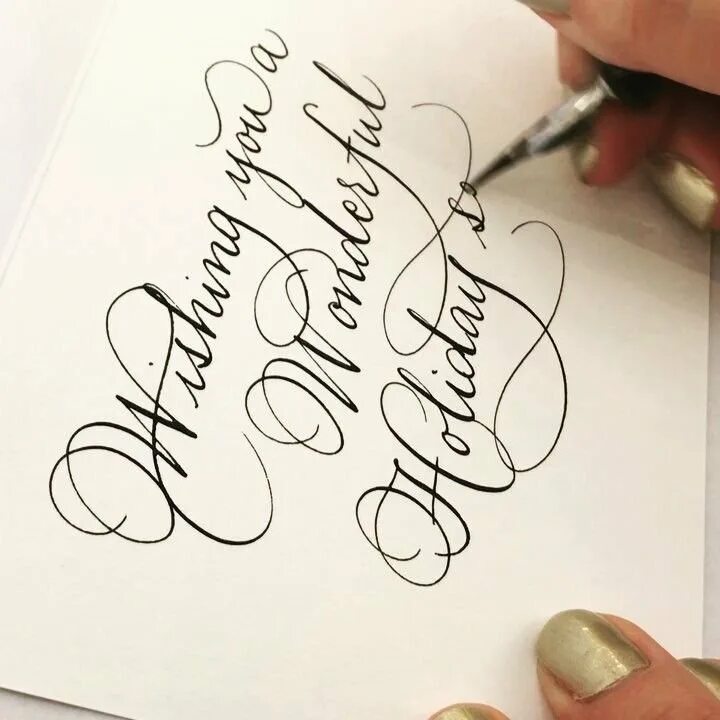 Wishing you a
Wonderful
Holiday so